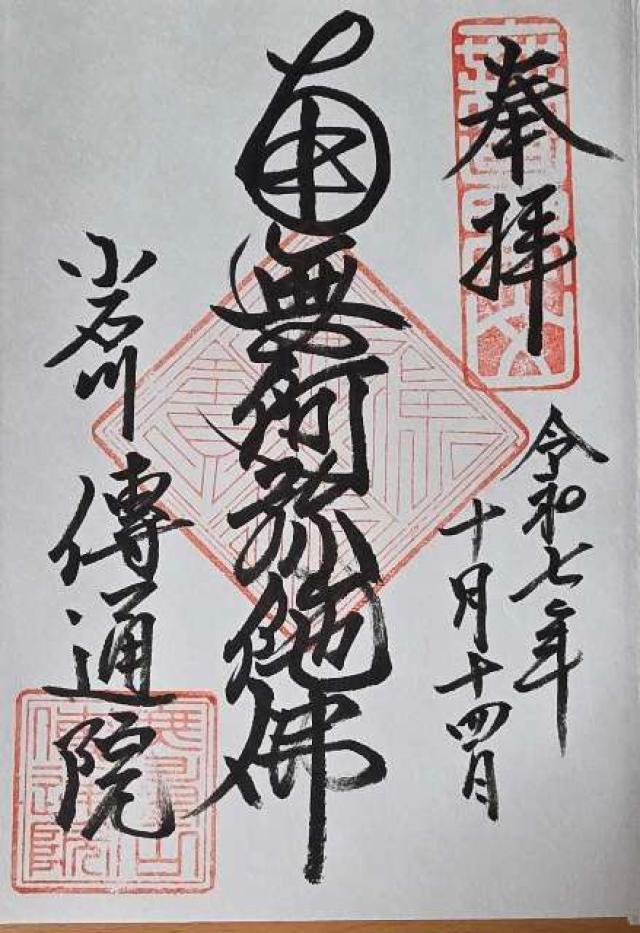 奉拝
令和七年
十月十四日
南無阿弥陀佛
小石川
傳通院